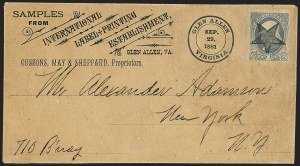 SAMPLES
FROM
INTERNATIONAL
LABEL & PRINTING
ESTABLISHMENT,
GLEN ALLEN, VA.
CUSSONS, MAY & SHEPPARD, Proprietors.
GLEN ALLEN
SEP.
29,
1881
VIRGINIA
Mr. Alexander Adamson
New York
N.Y
710 Bway